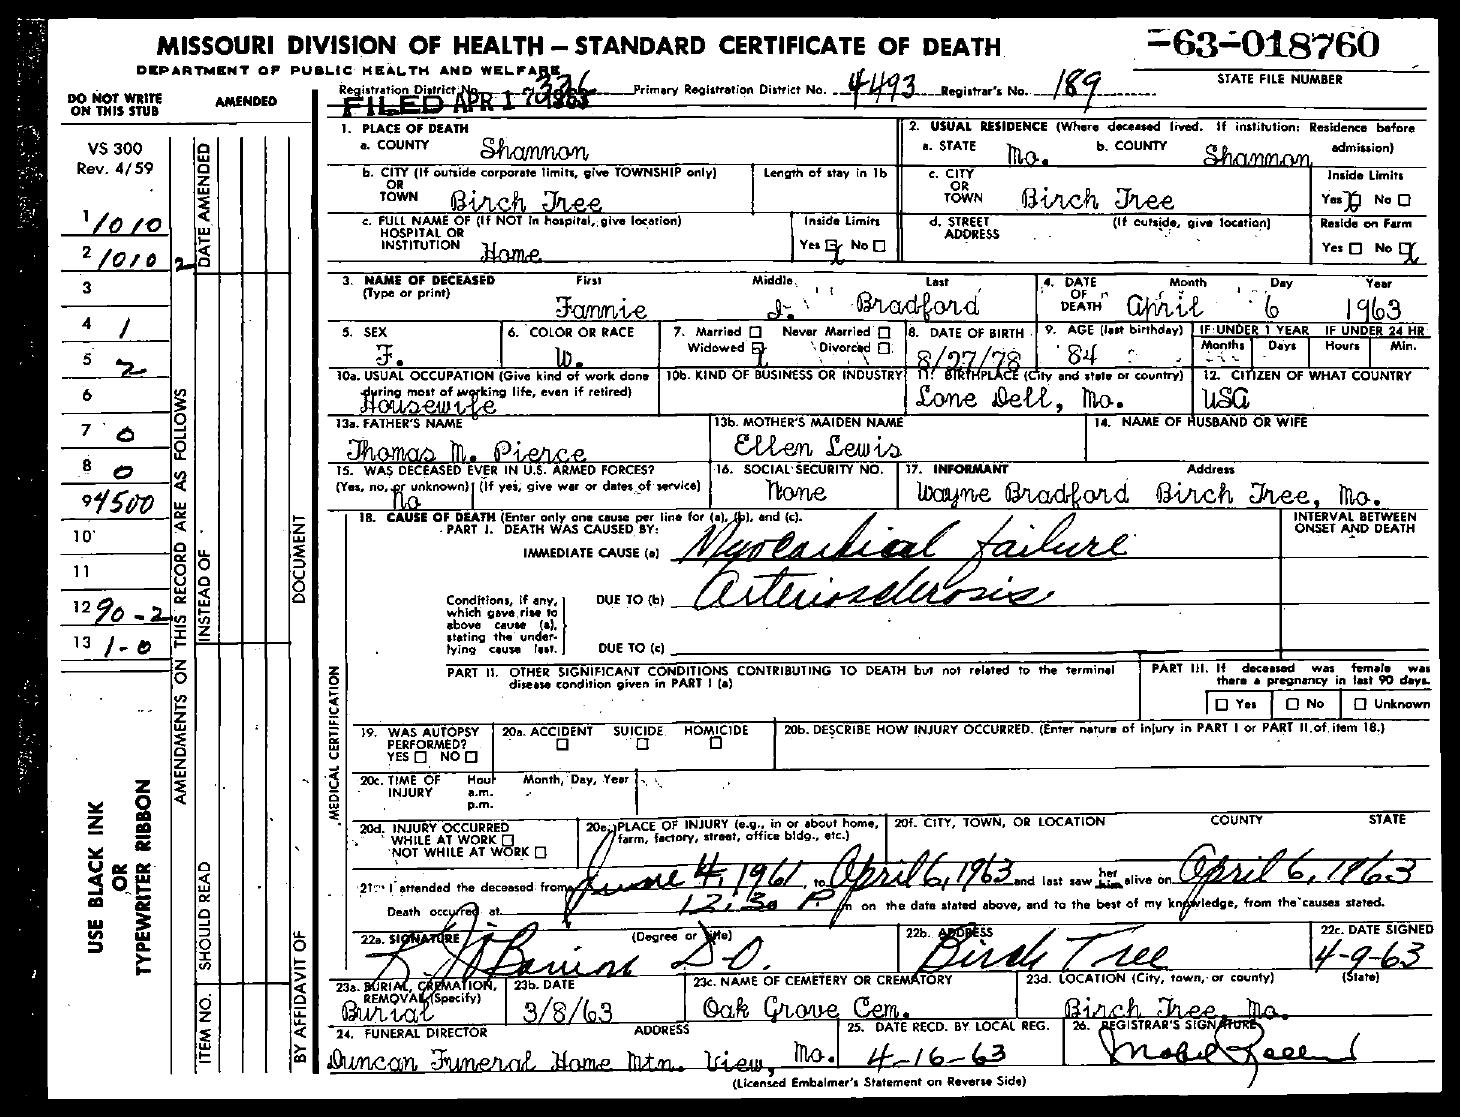 MISSOURI DIVISION OF HEALTH — STANDARD CERTIFICATE OF DEATH
-63-018760
DEPARTMENT OF PUBLIC HEALTH AND WELFARE
STATE FILE NUMBER
Registration District No. 336 Primary Registration District No. 4493 Registrar's No. 189
FILED APR 17 1963
DO NOT WRITE ON THIS STUB
AMENDED
VS 300
Rev. 4/59
1 1010
2 1010 2
3
4 1
5 2
6
7 0
8 0
9 4500
10
11
12 90-2
13 1-0
USE BLACK INK
OR
TYPEWRITER RIBBON
AMENDMENTS ON THIS RECORD ARE AS FOLLOWS
DATE AMENDED
INSTEAD OF
SHOULD READ
ITEM NO.
DOCUMENT
BY AFFIDAVIT OF
MEDICAL CERTIFICATION
1. PLACE OF DEATH
a. COUNTY Shannon
2. USUAL RESIDENCE (Where deceased lived. If institution: Residence before admission)
a. STATE Mo. b. COUNTY Shannon
b. CITY (If outside corporate limits, give TOWNSHIP only) OR TOWN Birch Tree
Length of stay in 1b
c. CITY OR TOWN Birch Tree
Inside Limits
Yes X No
c. FULL NAME OF (If NOT in hospital, give location) HOSPITAL OR INSTITUTION Home
Inside Limits
Yes X No
d. STREET ADDRESS (If outside, give location)
Reside on Farm
Yes No X
3. NAME OF DECEASED (Type or print) First Middle Last
Fannie I. Bradford
4. DATE OF DEATH Month Day Year
April 6 1963
5. SEX F.
6. COLOR OR RACE W.
7. Married Never Married
Widowed X Divorced
8. DATE OF BIRTH 8/27/78
9. AGE (last birthday) 84
IF UNDER 1 YEAR IF UNDER 24 HR
Months Days Hours Min.
10a. USUAL OCCUPATION (Give kind of work done during most of working life, even if retired)
Housewife
10b. KIND OF BUSINESS OR INDUSTRY
11. BIRTHPLACE (City and state or country)
Lone Dell, Mo.
12. CITIZEN OF WHAT COUNTRY
USA
13a. FATHER'S NAME
Thomas M. Pierce
13b. MOTHER'S MAIDEN NAME
Ellen Lewis
14. NAME OF HUSBAND OR WIFE
15. WAS DECEASED EVER IN U.S. ARMED FORCES?
(Yes, no, or unknown) (If yes, give war or dates of service)
No
16. SOCIAL SECURITY NO.
None
17. INFORMANT Address
Wayne Bradford Birch Tree, Mo.
18. CAUSE OF DEATH (Enter only one cause per line for (a), (b), and (c).
PART I. DEATH WAS CAUSED BY:
INTERVAL BETWEEN ONSET AND DEATH
IMMEDIATE CAUSE (a) Myocardical failure
Conditions, if any, which gave rise to above cause (a), stating the underlying cause last.
DUE TO (b) Arteriosclerosis
DUE TO (c)
PART II. OTHER SIGNIFICANT CONDITIONS CONTRIBUTING TO DEATH but not related to the terminal disease condition given in PART I (a)
PART III. If deceased was female was there a pregnancy in last 90 days.
Yes No Unknown
19. WAS AUTOPSY PERFORMED?
YES NO
20a. ACCIDENT SUICIDE HOMICIDE
20b. DESCRIBE HOW INJURY OCCURRED. (Enter nature of injury in PART I or PART II of item 18.)
20c. TIME OF INJURY Hour a.m. p.m. Month, Day, Year
20d. INJURY OCCURRED
WHILE AT WORK
NOT WHILE AT WORK
20e. PLACE OF INJURY (e.g., in or about home, farm, factory, street, office bldg., etc.)
20f. CITY, TOWN, OR LOCATION COUNTY STATE
21. I attended the deceased from June 4, 1961, to April 6, 1963 and last saw her him alive on April 6, 1963
Death occurred at 12:30 P. m on the date stated above, and to the best of my knowledge, from the causes stated.
22a. SIGNATURE (Degree or title)
D.O.
22b. ADDRESS
Birch Tree
22c. DATE SIGNED
4-9-63
23a. BURIAL, CREMATION, REMOVAL (Specify)
Burial
23b. DATE
3/8/63
23c. NAME OF CEMETERY OR CREMATORY
Oak Grove Cem.
23d. LOCATION (City, town, or county) (State)
Birch Tree, Mo.
24. FUNERAL DIRECTOR ADDRESS
Duncan Funeral Home Mtn. View, Mo.
25. DATE RECD. BY LOCAL REG.
4-16-63
26. REGISTRAR'S SIGNATURE
Mabel
(Licensed Embalmer's Statement on Reverse Side)